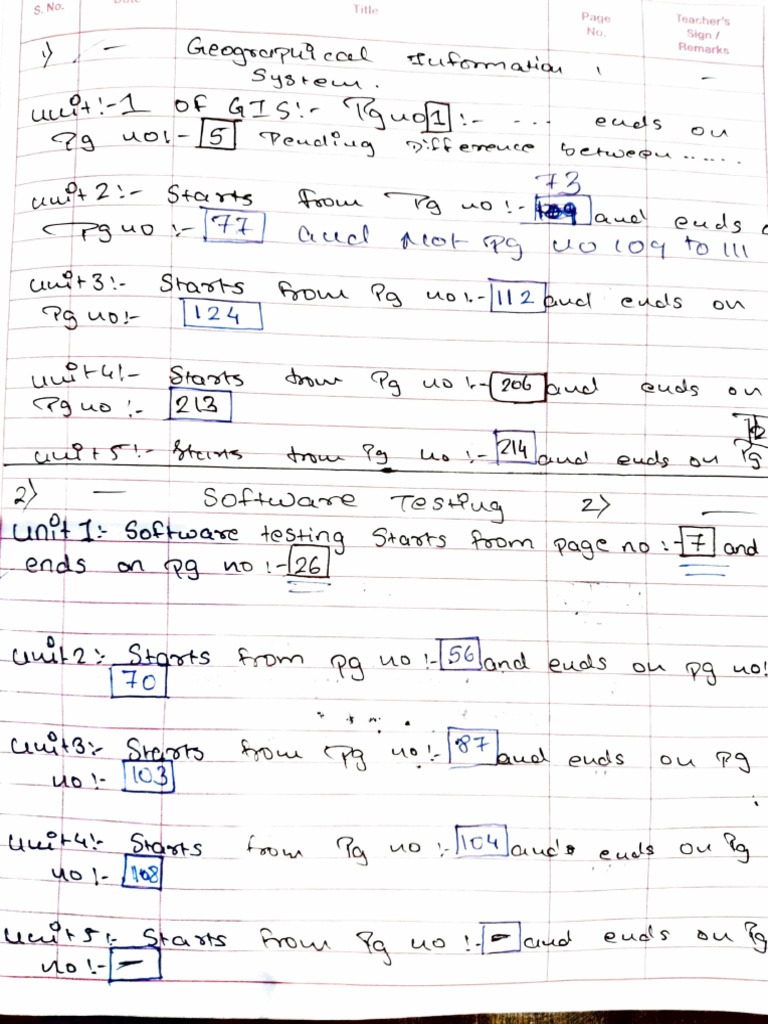 S. No. Title Page No. Teacher's Sign / Remarks
1) — Geographical Information
System.
unit:-1 of GIS:- Pg no 1 :- ... ends on
Pg no:- 5 Pending Difference between ......
73
unit 2:- Starts from Pg no:- and ends
Pg no :- 77 and Not Pg no 109 to 111
unit 3:- Starts from Pg no:- 112 and ends on
Pg no:- 124
unit 4:- Starts from Pg no:- 206 and ends on
Pg no :- 213
unit 5:- Starts from Pg no :- 214 and ends on Pg
2) — Software Testing 2) —
Unit 1:- Software testing Starts from page no :- 7 and
ends on pg no :- 26
unit 2:- Starts from pg no :- 56 and ends on pg no:
70
unit 3:- Starts from Pg no:- 87 and ends on pg
no :- 103
unit 4:- Starts from Pg no :- 104 and ends on Pg
no :- 108
unit 5:- Starts from Pg no :- - and ends on Pg
no :- -